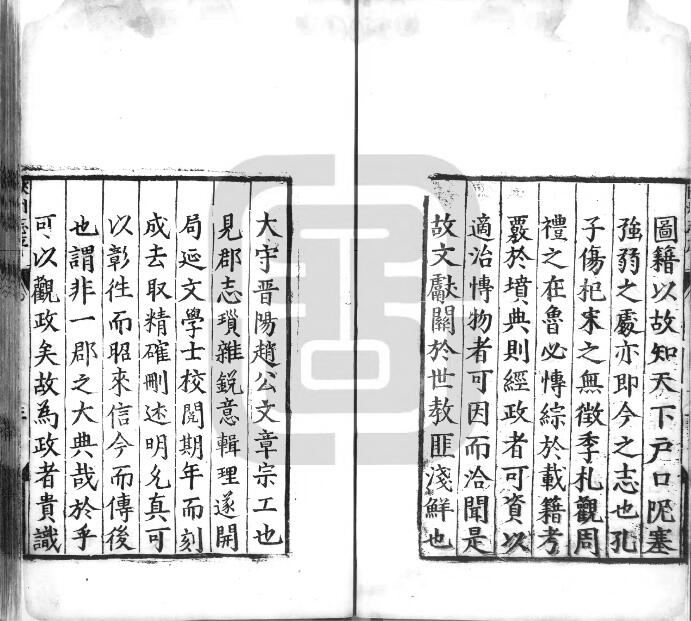 圖籍以故知天下戶口阨塞
強弱之處亦即今之志也孔
子傷杞宋之無徵季札觀周
禮之在魯必博綜於載籍考
覈於墳典則經政者可資以
適治博物者可因而洽聞是
故文獻關於世教匪淺鮮也
大宇晋陽趙公文章宗工也
見郡志瑣雜銳意輯理遂開
局延文學士校閱期年而刻
成去取精確刪述明允真可
以彰徃而昭來信今而傳後
也謂非一郡之大典哉於乎
可以觀政矣故為政者貴識